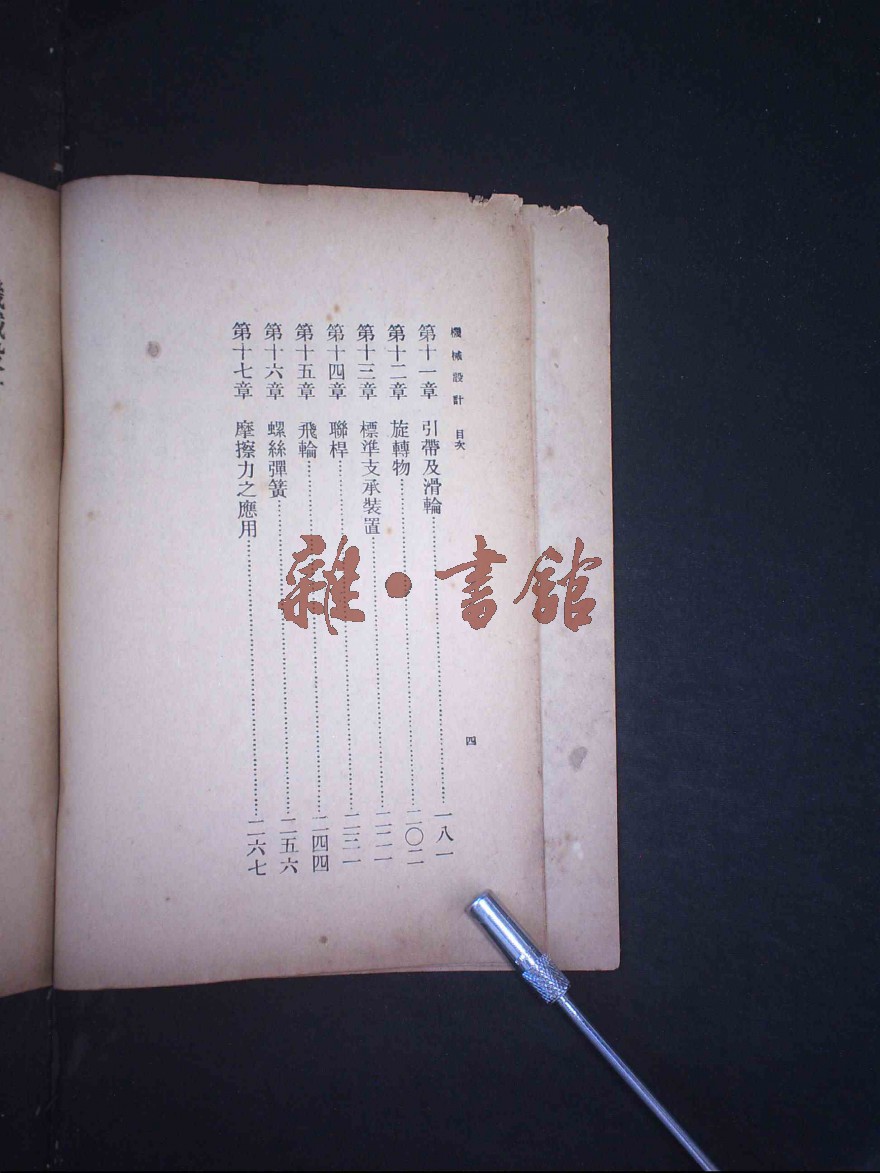 機械設計　目次
四
第十一章　引帶及滑輪……一八一
第十二章　旋轉物……二〇二
第十三章　標準支承裝置……二二一
第十四章　聯桿……二三一
第十五章　飛輪……二四四
第十六章　螺絲彈簧……二五六
第十七章　摩擦力之應用……二六七
雜·書館